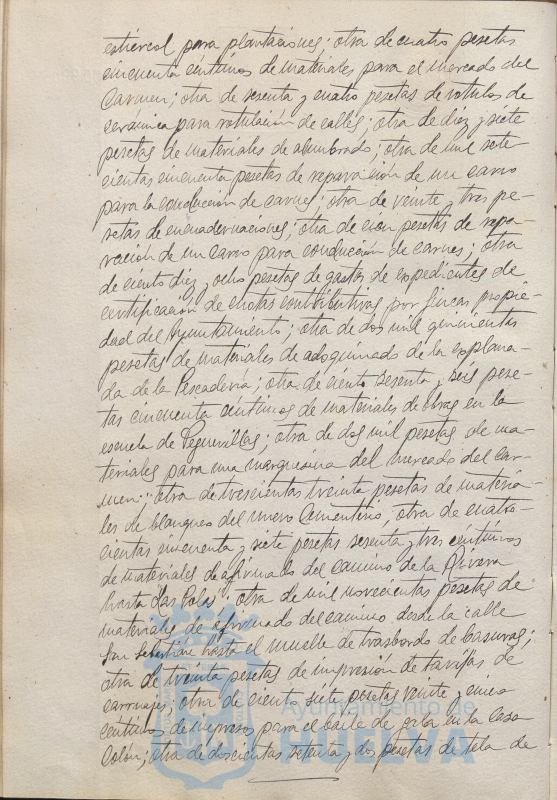 estiércol para plantaciones; otra de cuatro pesetas
cincuenta céntimos de materiales para el mercado del
Carmen; otra de sesenta y cuatro pesetas de rótulos de
cerámica para rotulación de calles; otra de diez y siete
pesetas de materiales de alumbrado; otra de mil sete-
cientas cincuenta pesetas de reparación de un carro
para la conducción de carnes; otra de veinte y tres pe-
setas de encuadernaciones; otra de cien pesetas de repa-
ración de un carro para conducción de carnes; otra
de ciento diez y ocho pesetas de gastos de expedientes de
certificación de cuotas contributivas por fincas propie-
dad del Ayuntamiento; otra de dos mil quinientas
pesetas de materiales de adoquinado de la explana-
da de la Pescadería; otra de ciento sesenta y seis pese-
tas cincuenta céntimos de materiales de obras en la
escuela de Peguerillas; otra de dos mil pesetas de ma-
teriales para una marquesina del mercado del Car-
men; otra de trescientas treinta pesetas de materia-
les de blanqueo del nuevo Cementerio, otra de cuatro-
cientas cincuenta y siete pesetas sesenta y tres céntimos
de materiales de afirmado del camino de la Rivera
hasta Las Colas; otra de mil novecientas pesetas de
materiales de afirmado del camino desde la calle
San Sebastián hasta el muelle de trasbordo de basuras;
otra de treinta pesetas de impresión de tarifas de
carruajes; otra de ciento siete pesetas veinte y cinco
céntimos de impresos para el baile de gala en la Casa
Colón; otra de doscientas setenta y dos pesetas de tela de
Ayuntamiento de
HUELVA